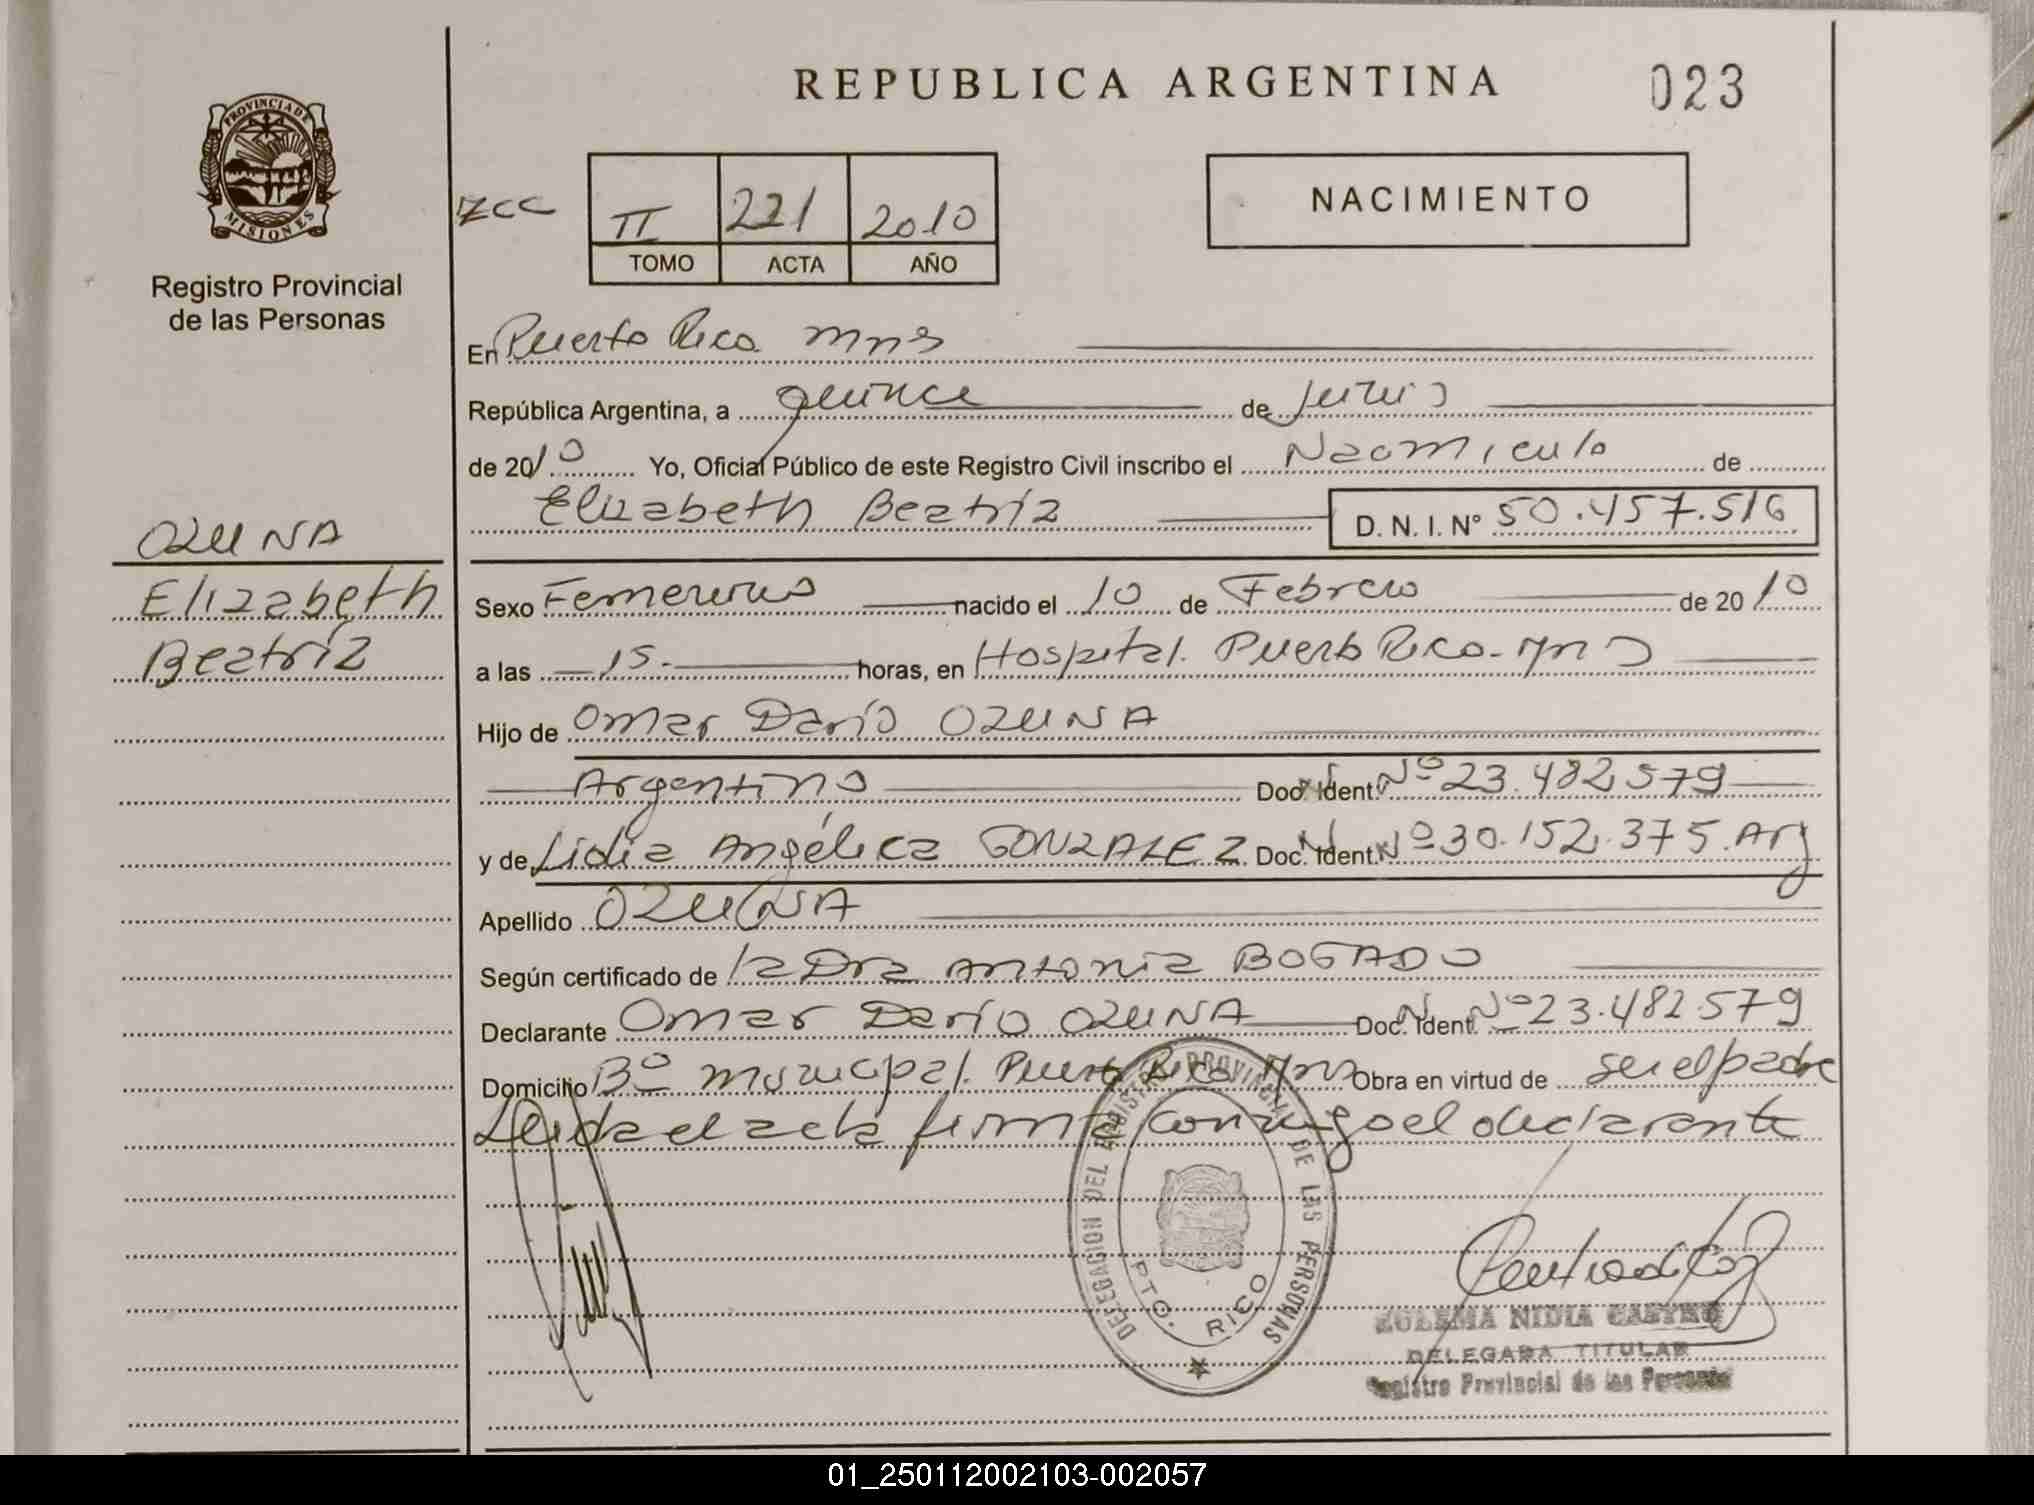 REPUBLICA ARGENTINA
023
PROVINCIA DE
MISIONES
Registro Provincial
de las Personas
ZCC
II 221 2010
TOMO ACTA AÑO
NACIMIENTO
En Puerto Rico Mns
República Argentina, a quince de Junio
de 2010 Yo, Oficial Público de este Registro Civil inscribo el Nacimiento de
Elizabeth Beatríz D. N. I. N° 50.457.516
OZUNA
Elizabeth
Beatríz
Sexo Femenino nacido el 10 de Febrero de 20 10
a las 15. horas, en Hospital. Puerto Rico. Mns
Hijo de Omar Darío OZUNA
Argentino Doc. Ident. Nº 23.482.579
y de Lidia Angélica GONZALEZ Doc. Ident. Nº 30.152.375. Arg
Apellido OZUNA
Según certificado de la Dra Antonia BOGADO
Declarante Omar Darío OZUNA Doc. Ident. Nº 23.482.579
Domicilio Bº Municipal. Puerto Rico Mns Obra en virtud de ser el padre
Leida el acta firma conmigo el declarante
DELEGACION DEL REGISTRO PROVINCIAL DE LAS PERSONAS
PTO. RICO
ZULEMA NIDIA CASTRO
DELEGADA TITULAR
Registro Provincial de las Personas
01_250112002103-002057